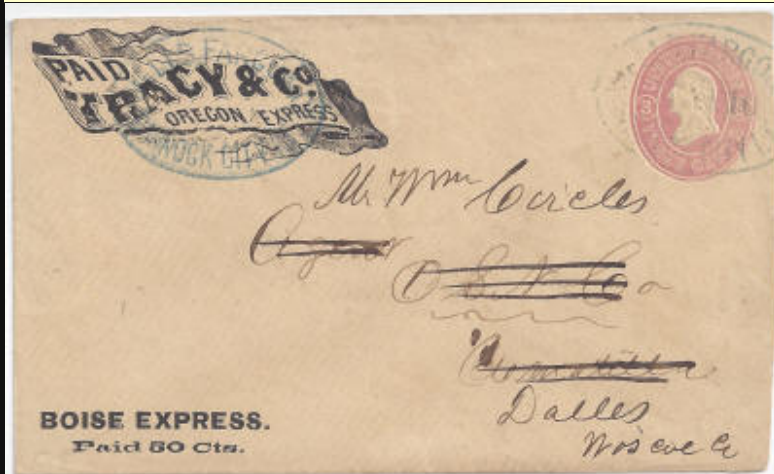 PAID
TRACY & Co.
OREGON EXPRESS
NNOCK CITY
FARGO
Mr Wm Circles
Agent
O S N Co
Umatilla
Dalles
Wascoe Co
BOISE EXPRESS.
Paid 50 Cts.